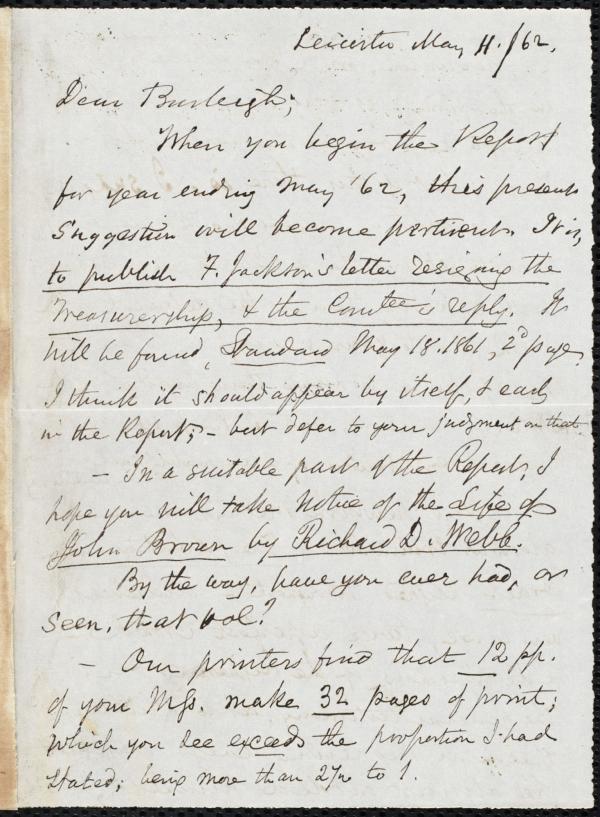 Leicester May 11./62.
Dear Burleigh;
When you begin the Report
for year ending May '62, this present
suggestion will become pertinent. It is,
to publish F. Jackson's letter resigning the
Treasurership, & the Comtee's reply. It
will be found, Standard May 18. 1861, 2d page.
I think it should appear by itself, & early
in the Report; – but defer to your judgment on that.
– In a suitable part of the Report, I
hope you will take notice of the Life of
John Brown by Richard D. Webb.
By the way, have you ever had, or
seen, that vol?
– Our printers find that 12 pp.
of your Mss. make 32 pages of print;
which you see exceeds the proportion I had
stated; being more than 2½ to 1.